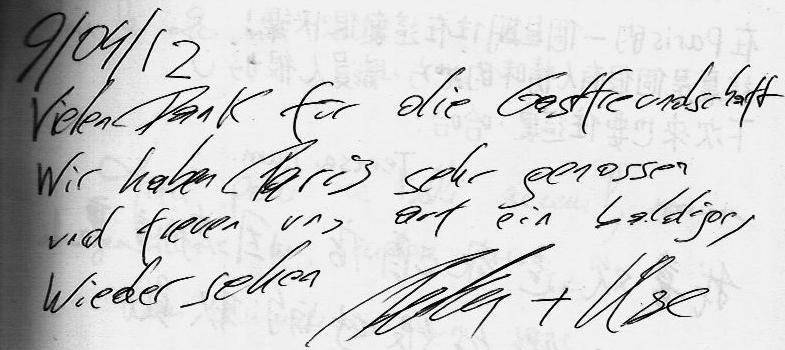 9/04/12
Vielen Dank für die Gastfreundschaft
Wir haben Paris sehr genossen
und freuen uns auf ein baldiges
Wiedersehen + Ilse